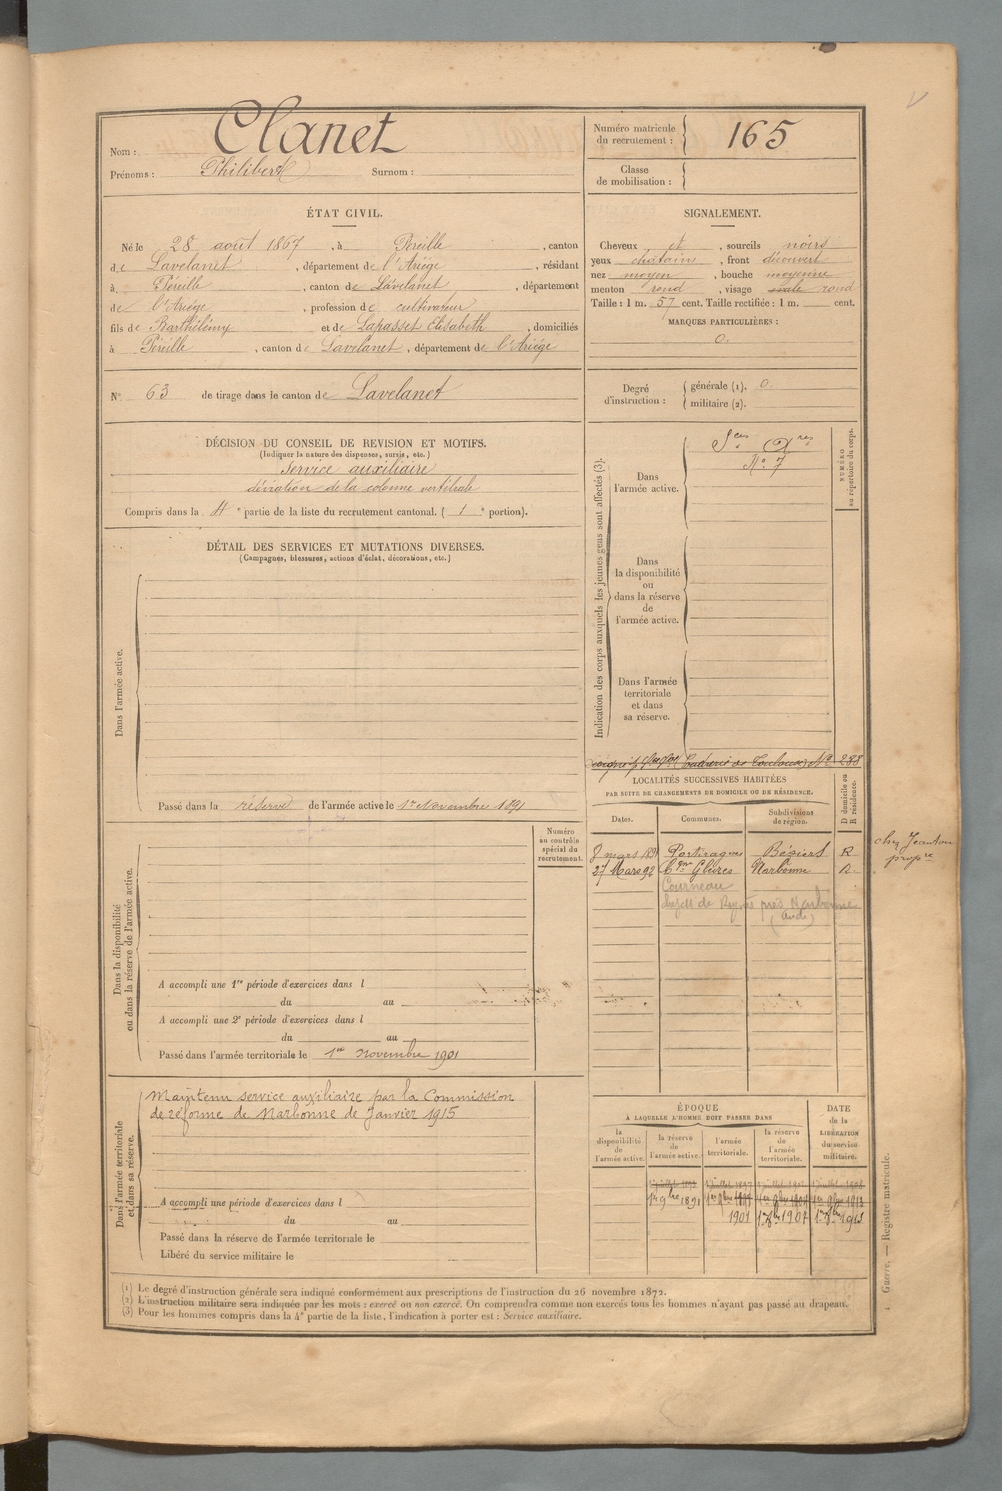 Nom : Clanet
Prénoms : Philibert Surnom :
Numéro matricule
du recrutement : 165
Classe
de mobilisation :
ÉTAT CIVIL.
Né le 28 août 1867, à Péreille, canton
de Lavelanet, département de l'Ariège, résidant
à Péreille, canton de Lavelanet, département
de l'Ariège, profession de cultivateur
fils de Barthélémy et de Lapasset Elisabeth, domiciliés
à Péreille, canton de Lavelanet, département de l'Ariège
N° 63 de tirage dans le canton de Lavelanet
SIGNALEMENT.
Cheveux et, sourcils noirs
yeux chatain, front découvert
nez moyen, bouche moyenne
menton rond, visage ovale rond
Taille : 1 m. 57 cent. Taille rectifiée : 1 m. cent.
MARQUES PARTICULIÈRES :
o.
Degré
d'instruction :
générale (1). o.
militaire (2).
DÉCISION DU CONSEIL DE REVISION ET MOTIFS.
(Indiquer la nature des dispenses, sursis, etc.)
Service auxiliaire
déviation de la colonne vertébrale
Compris dans la 4e partie de la liste du recrutement cantonal. ( 1e portion).
DÉTAIL DES SERVICES ET MUTATIONS DIVERSES.
(Campagnes, blessures, actions d'éclat, décorations, etc.)
Dans l'armée active.
Passé dans la réserve de l'armée active le 1er Novembre 1891
Dans la disponibilité
ou dans la réserve de l'armée active.
Numéro
au contrôle
spécial du
recrutement.
A accompli une 1re période d'exercices dans l
du au
A accompli une 2e période d'exercices dans l
du au
Passé dans l'armée territoriale le 1er novembre 1901
Dans l'armée territoriale
et dans sa réserve.
Maintenu service auxiliaire par la Commission
de réforme de Narbonne de Janvier 1915
A accompli une période d'exercices dans l
du au
Passé dans la réserve de l'armée territoriale le
Libéré du service militaire le
Indication des corps auxquels les jeunes gens sont affectés (3).
NUMÉRO
au répertoire du corps.
Dans
l'armée active.
Sces Axres
No. 7
Dans
la disponibilité
ou
dans la réserve
de
l'armée active.
Dans l'armée
territoriale
et dans
sa réserve.
(Poudrerie de Toulouse) No 288
LOCALITÉS SUCCESSIVES HABITÉES
PAR SUITE DE CHANGEMENTS DE DOMICILE OU DE RÉSIDENCE.
Dates. Communes. Subdivisions
de région. D domicile ou
R résidence.
8 mars 1891 Portiragnes Béziers R chez Jeantou
27 Mars 92 Narbonne R. propre
Courneau
près Narbonne
(Aude)
ÉPOQUE
À LAQUELLE L'HOMME DOIT PASSER DANS
DATE
de la
LIBÉRATION
du service
militaire.
la
disponibilité
de
l'armée active.
la réserve
de
l'armée active.
l'armée
territoriale.
la réserve
de
l'armée
territoriale.
1er 9bre 1891
1901 1er 8bre 1907 1er 8bre 1913
(1) Le degré d'instruction générale sera indiqué conformément aux prescriptions de l'instruction du 26 novembre 1872.
(2) L'instruction militaire sera indiquée par les mots : exercé ou non exercé. On comprendra comme non exercés tous les hommes n'ayant pas passé au drapeau.
(3) Pour les hommes compris dans la 4e partie de la liste, l'indication à porter est : Service auxiliaire.
Guerre. — Registre matricule.